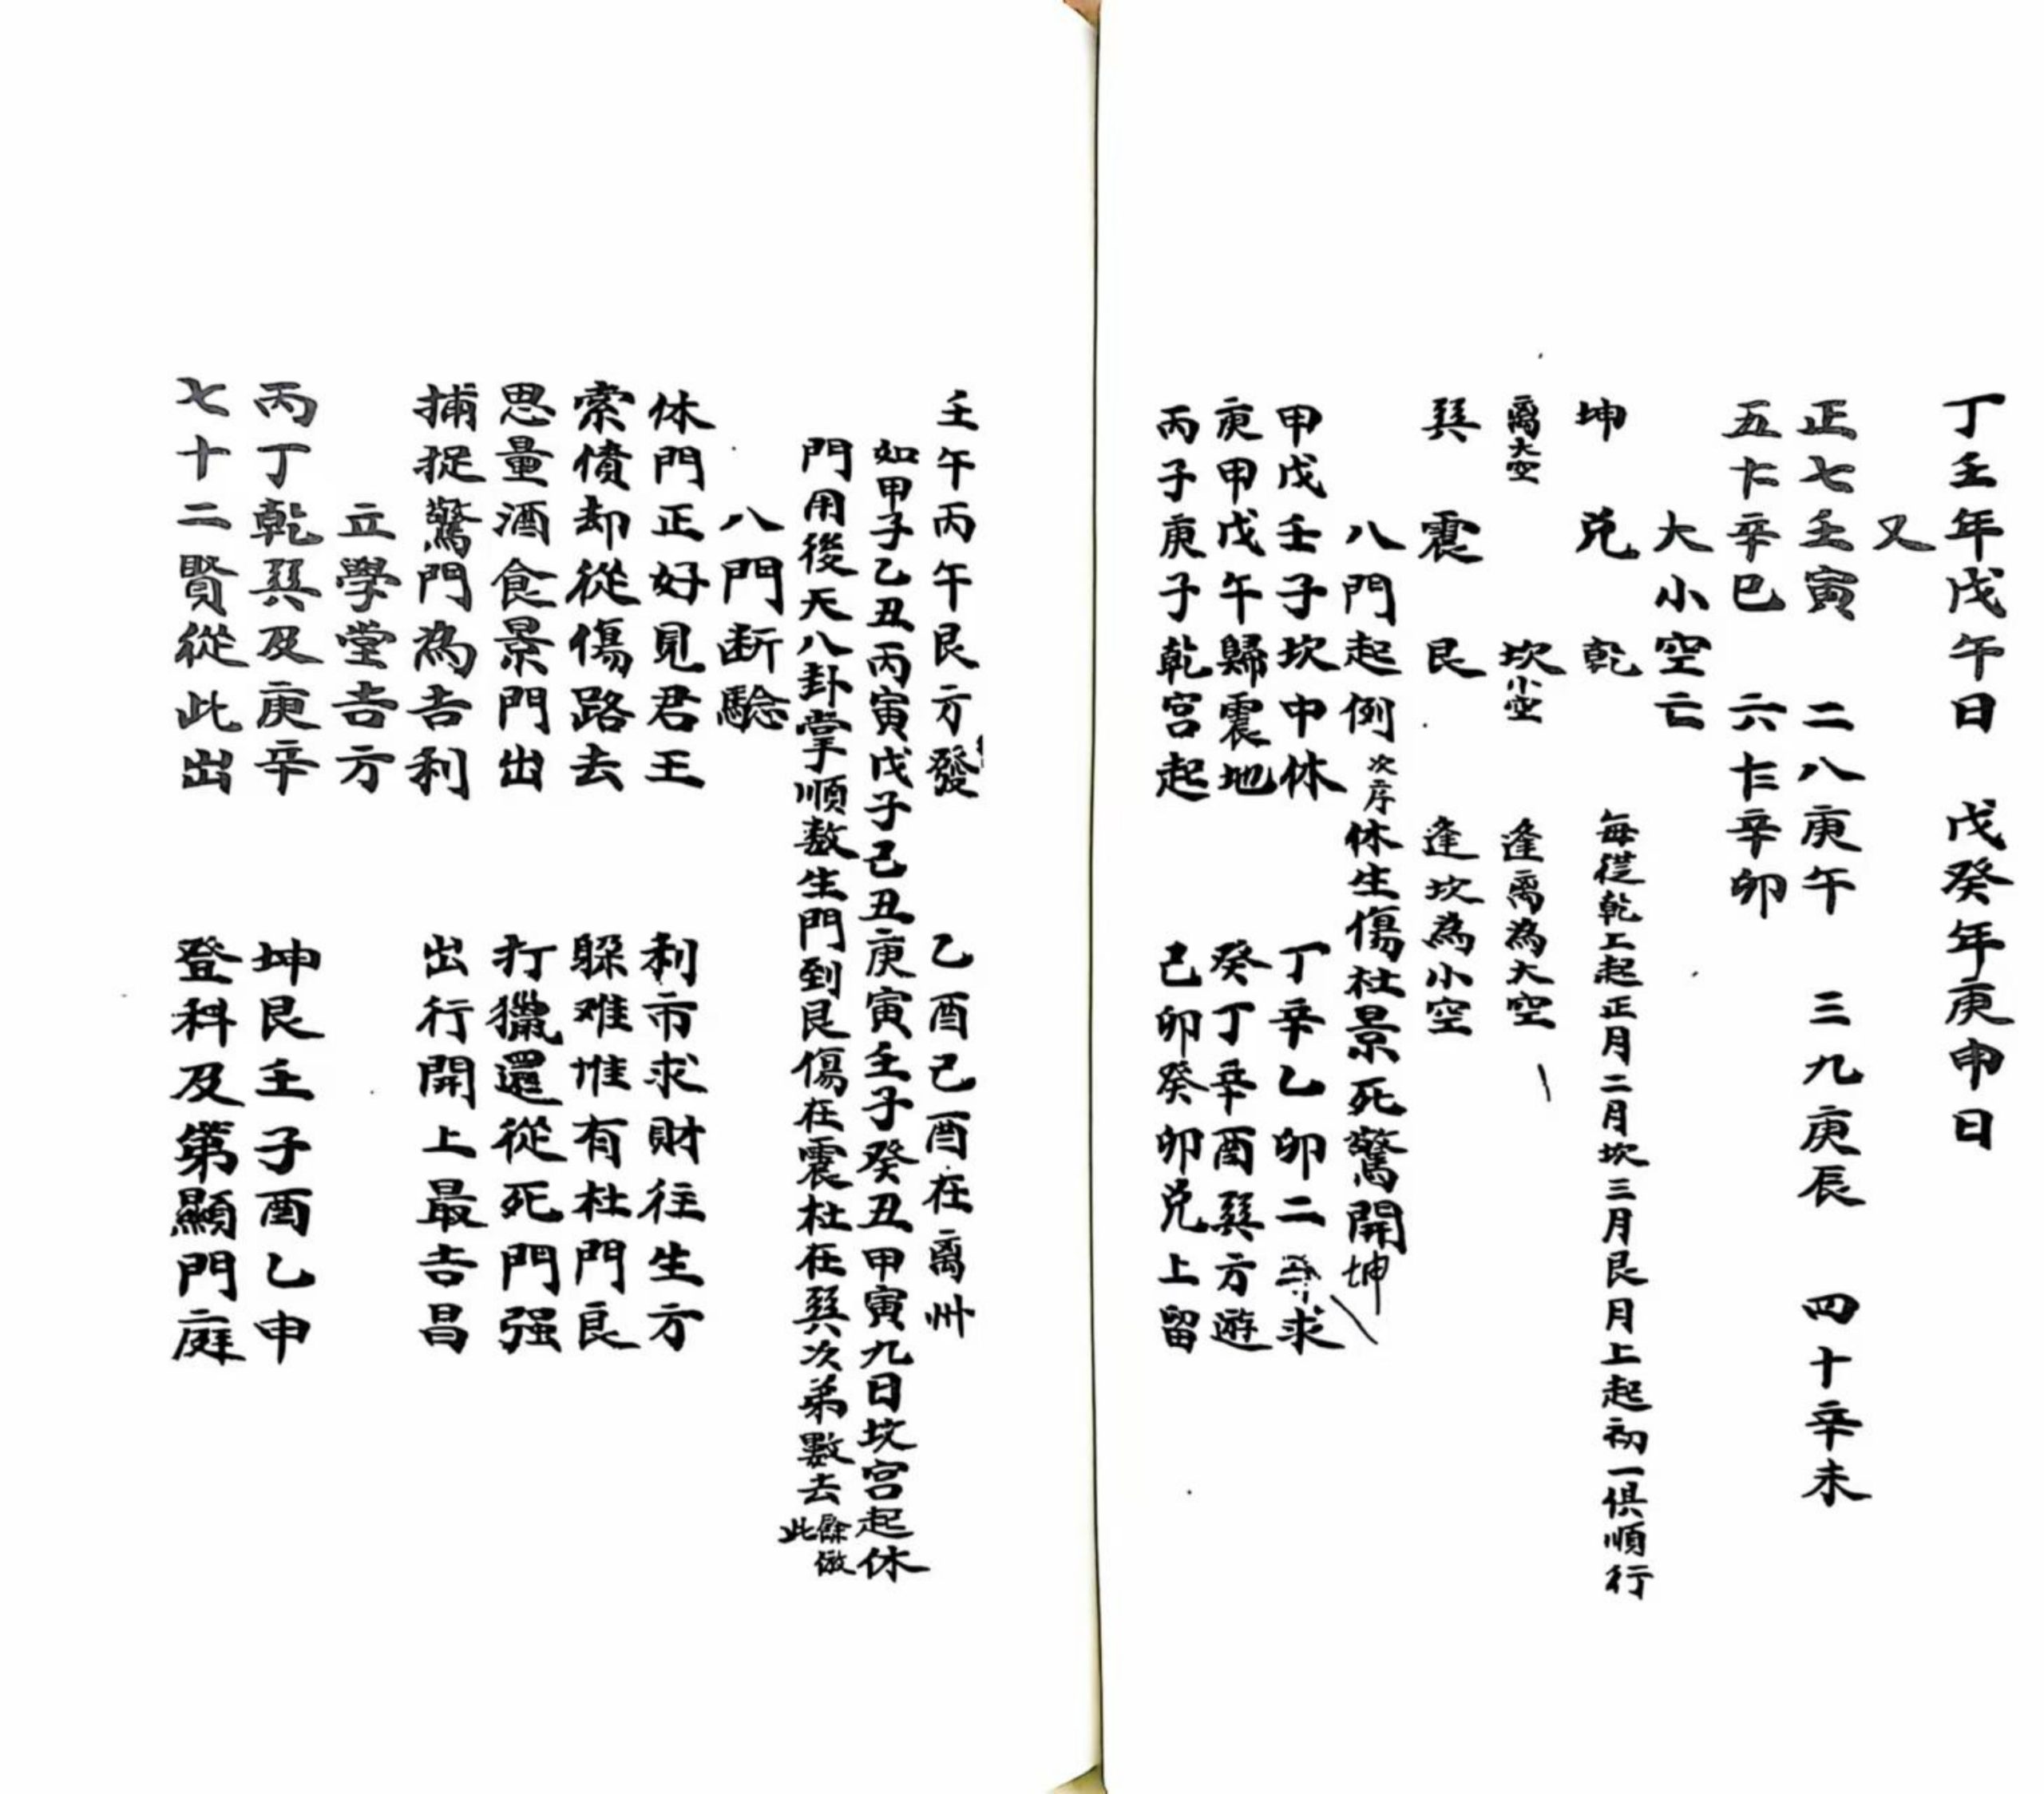 丁壬年戊午日　戊癸年庚申日
又
正七壬寅　二八庚午　三九庚辰　四十辛未
五十辛巳　六十辛卯
大小空亡
坤　兌　乾　每從乾上起正月二月坎三月艮月上起初一俱順行
離大空　坎小空　逢离為大空
巽　震　艮　逢坎為小空
八門起例　次序　休生傷杜景死驚開坤
甲戊壬子坎中休　丁辛乙卯二求
庚甲戊午歸震地　癸丁辛酉巽方遊
丙子庚子乾宮起　己卯癸卯兌上留
壬午丙午艮方發　乙酉己酉在离卅
如甲子乙丑丙寅戊子己丑庚寅壬子癸丑甲寅九日坎宮起休
門用後天八卦掌順数生門到艮傷在震杜在巽次弟數去餘倣此
八門断驗
休門正好見君王　利市求財往生方
索債却從傷路去　躲难惟有杜門良
思量酒食景門出　打獵還從死門强
捕捉驚門為吉利　出行開上最吉昌
立學堂吉方
丙丁乾巽及庚辛　坤艮壬子酉乙申
七十二賢從此出　登科及第顯門庭